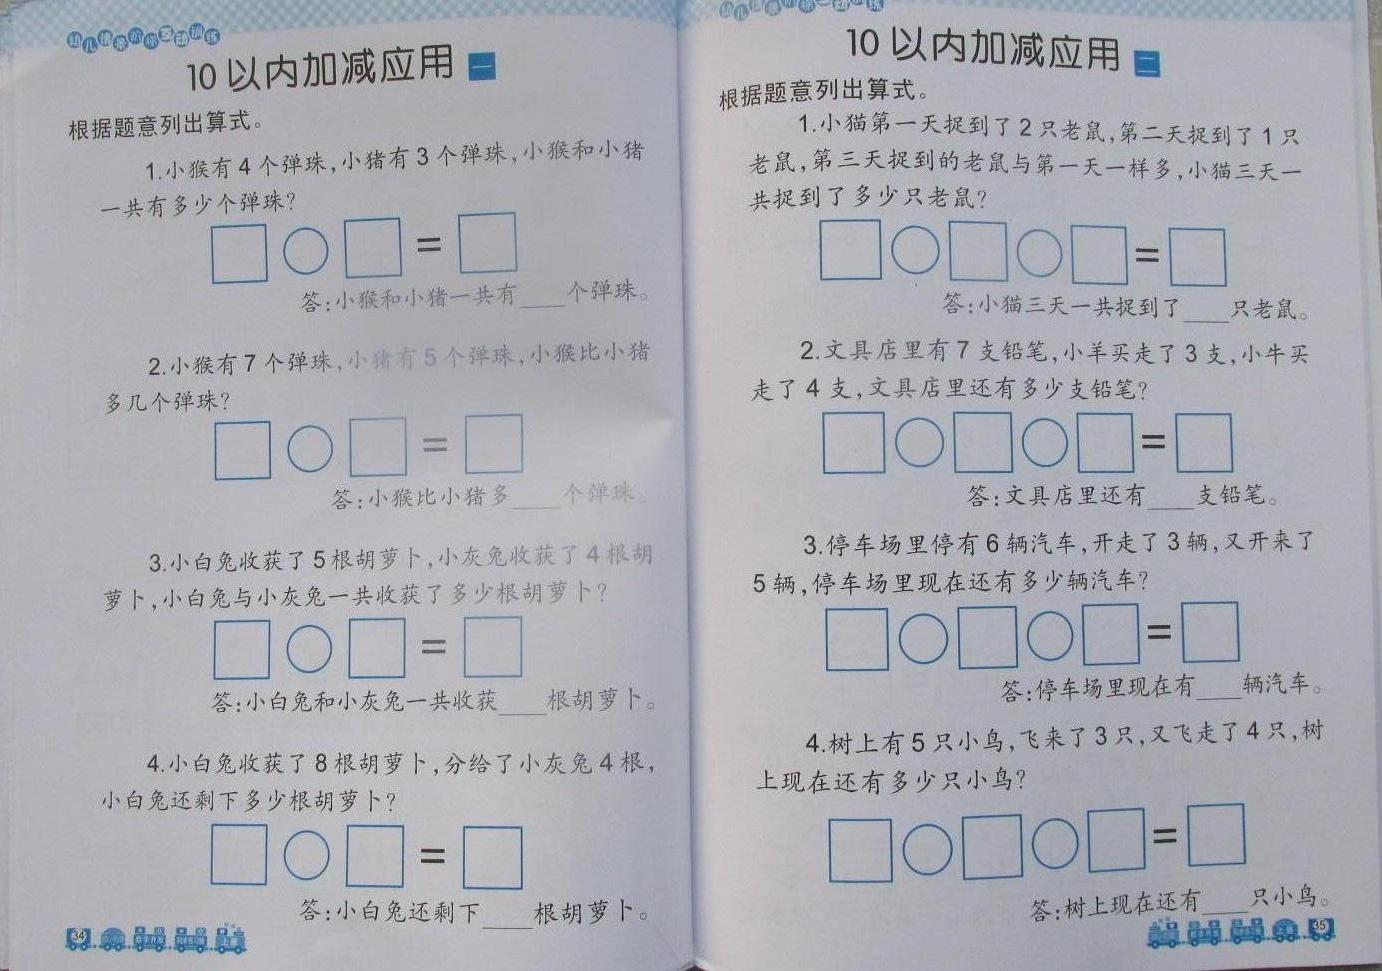 幼儿情景阶梯互动训练
10以内加减应用 一
根据题意列出算式。
1.小猴有4个弹珠,小猪有3个弹珠,小猴和小猪
一共有多少个弹珠?
=
答:小猴和小猪一共有___个弹珠。
2.小猴有7个弹珠,小猪有5个弹珠,小猴比小猪
多几个弹珠?
=
答:小猴比小猪多___个弹珠。
3.小白兔收获了5根胡萝卜,小灰兔收获了4根胡
萝卜,小白兔与小灰兔一共收获了多少根胡萝卜?
=
答:小白兔和小灰兔一共收获___根胡萝卜。
4.小白兔收获了8根胡萝卜,分给了小灰兔4根,
小白兔还剩下多少根胡萝卜?
=
答:小白兔还剩下___根胡萝卜。
34
10以内加减应用 二
根据题意列出算式。
1.小猫第一天捉到了2只老鼠,第二天捉到了1只
老鼠,第三天捉到的老鼠与第一天一样多,小猫三天一
共捉到了多少只老鼠?
=
答:小猫三天一共捉到了___只老鼠。
2.文具店里有7支铅笔,小羊买走了3支,小牛买
走了4支,文具店里还有多少支铅笔?
=
答:文具店里还有___支铅笔。
3.停车场里停有6辆汽车,开走了3辆,又开来了
5辆,停车场里现在还有多少辆汽车?
=
答:停车场里现在有___辆汽车。
4.树上有5只小鸟,飞来了3只,又飞走了4只,树
上现在还有多少只小鸟?
=
答:树上现在还有___只小鸟。
35